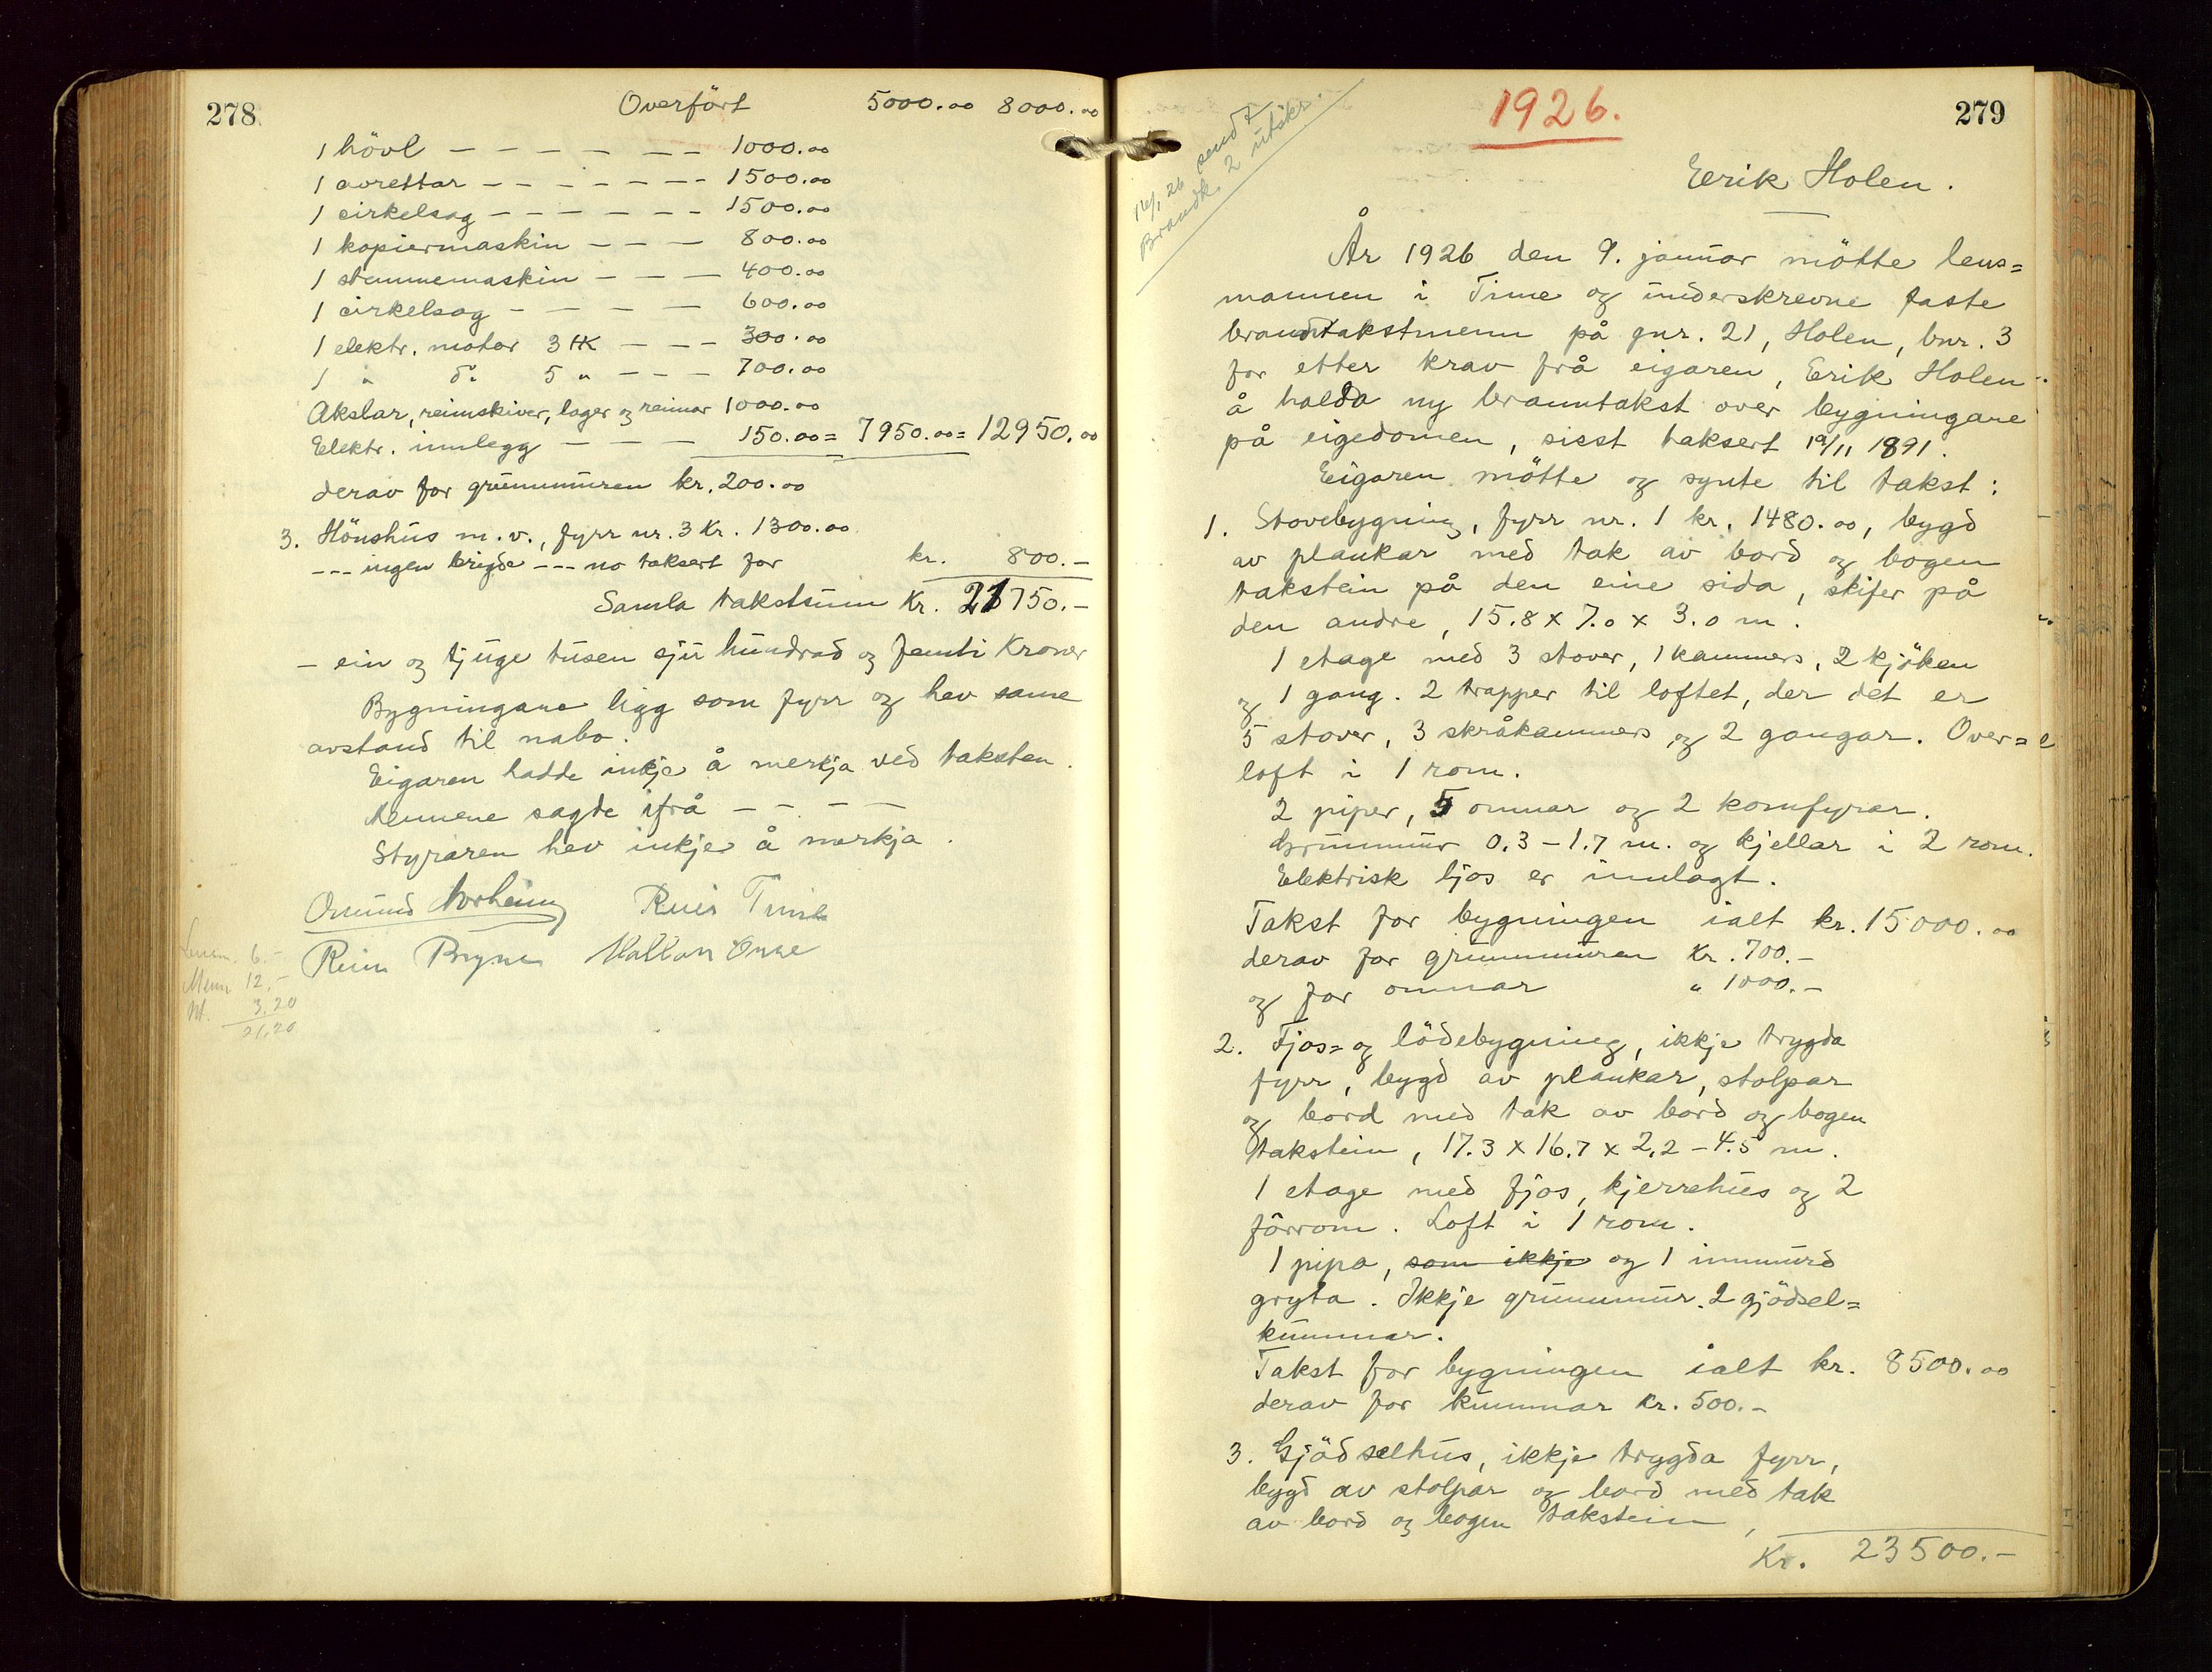 278
Overført 5000.00 8000.00
1 hövl - - - - - - - 1000.00
1 avrettar - - - - - - - 1500.00
1 cirkelsag - - - - - - 1500.00
1 kopiermaskin - - - - 800.00
1 stemmemaskin - - - - 400.00
1 cirkelsag - - - - - 600.00
1 elektr. motor 3 HK - - - 300.00
1 " do 5 " - - - 700.00
Akslar, reimskiver, lager og reimar 1000.00
Elektr. innlegg - - - - 150.00 = 7950.00 = 12950.00
derav for grunnmuren kr. 200.00
3. Hönshus m.v., fyrr nr. 3 Kr. 1300.00
--- ingen brigde --- no taksert for kr. 800.-
Samla takstsum Kr. 21750.-
- ein og tjuge tusen sju hundrad og femti Kroner
Bygningane ligg som fyrr og hev same
avstand til nabo.
Eigaren hadde inkje å merkja ved taksten.
Mennene sagde ifrå - - - -
Styraren hev inkje å merkja.
Omund Norheim Time
Bryne
Lensm. 6.-
Menn 12.-
3.20
21.20
279
1926.
16/1 26 sendt
Brandk. 2 utskr.
Eerik Holen.
År 1926 den 9. januar mötte lens=
mannen i Time og underskrevne faste
branntakstmenn på gnr. 21, Holen, bnr. 3
for etter krav frå eigaren, Erik Holen
å halda ny branntakst over bygningane
på eigedomen, sisst taksert 19/11 1891.
Eigaren mötte og synte til takst:
1. Stovebygning, fyrr nr. 1 kr. 1480.00, bygd
av plankar med tak av bord og bogen
takstein på den eine sida, skifer på
den andre, 15.8 x 7.0 x 3.0 m.
1 etage med 3 stover, 1 kammers, 2 kjöken
og 1 gang. 2 trapper til loftet, der det er
5 stover, 3 skråkammers og 2 gangar. Over=
loft i 1 rom.
2 piper, 5 omnar og 2 komfyrar.
Grunnmur 0.3 - 1.7 m. og kjellar i 2 rom.
Elektrisk ljos er innlagt.
Takst for bygningen ialt kr. 15000.00
derav for grunnmuren Kr. 700.-
og for omnar " 1000.-
2. Fjos= og lödebygning, ikkje trygda
fyrr, bygd av plankar, stolpar
og bord med tak av bord og bogen
takstein, 17.3 x 16.7 x 2.2 - 4.5 m.
1 etage med fjos, kjerrehus og 2
fôrrom. Loft i 1 rom.
1 pipa, som ikkje og 1 innmurd
gryta. Ikkje grunnmur. 2 gjödsel=
kummar.
Takst for bygningen ialt kr. 8500.00
derav for kummar Kr. 500.-
3. Gjödselhus, ikkje trygda fyrr,
bygd av stolpar og bord med tak
av bord og bogen takstein,
Kr. 23500.-